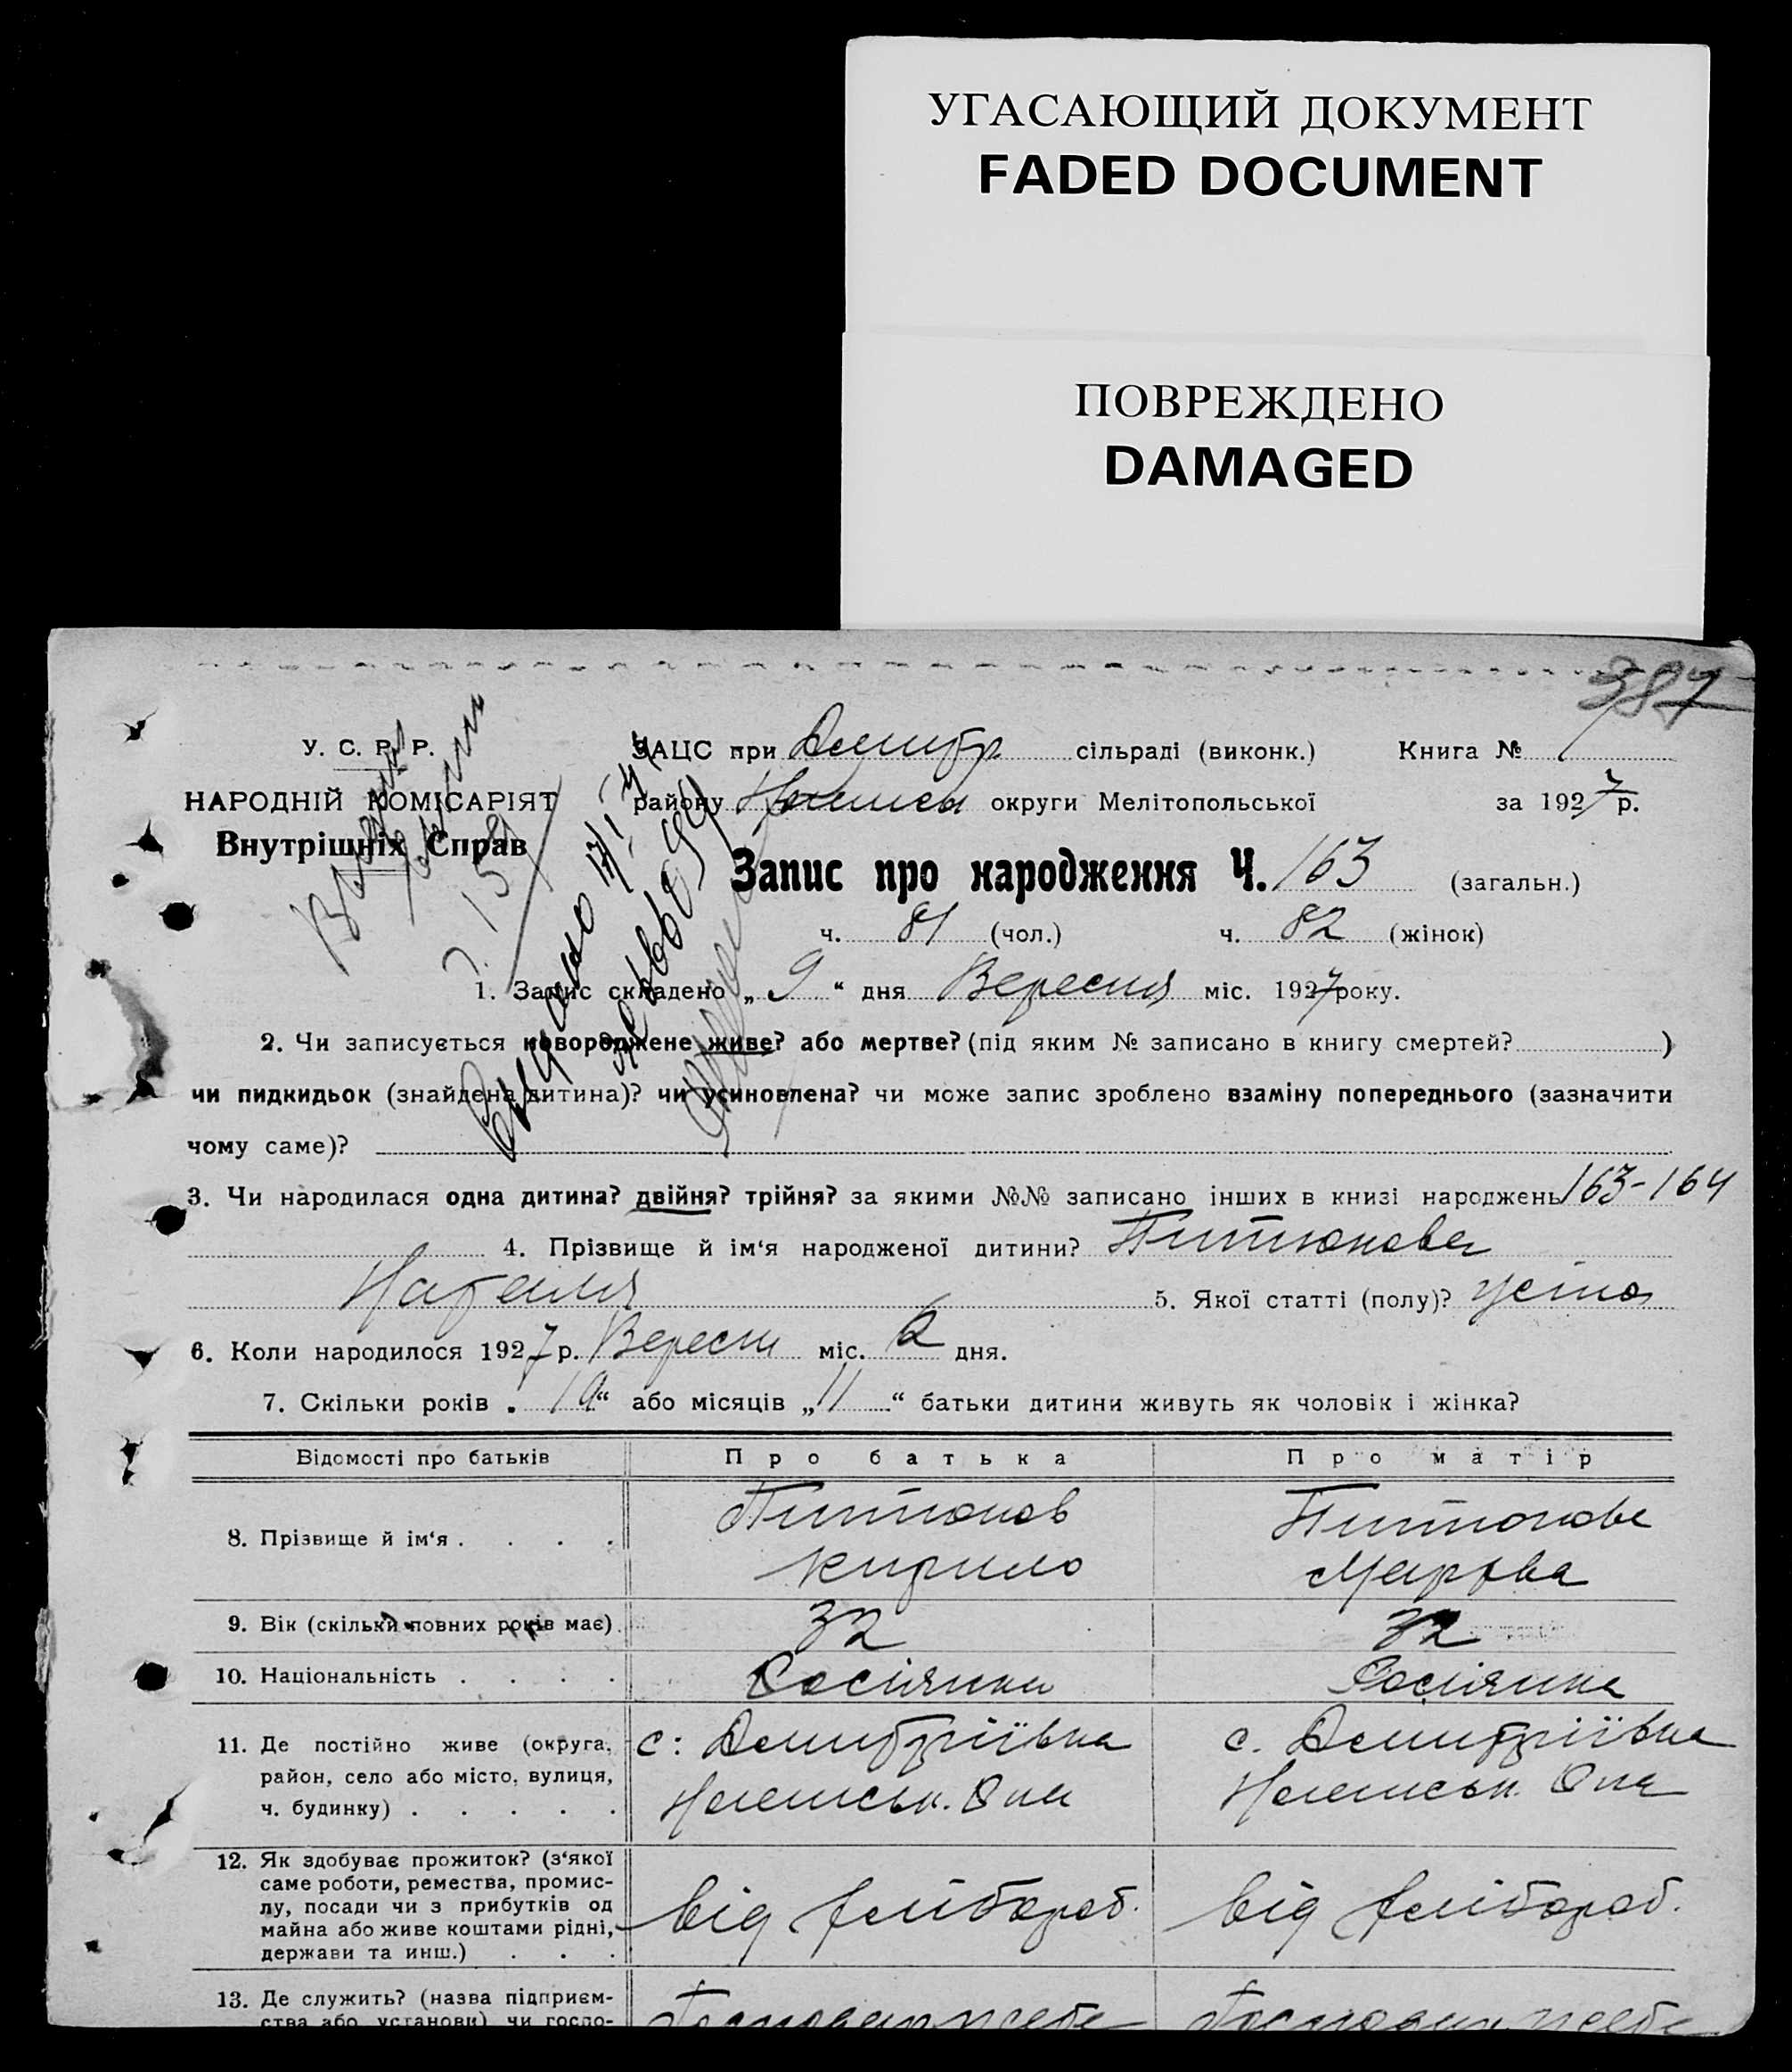 УГАСАЮЩИЙ ДОКУМЕНТ
FADED DOCUMENT
ПОВРЕЖДЕНО
DAMAGED
387
У. С. Р. Р.
НАРОДНІЙ КОМІСАРІЯТ
Внутрішніх Справ
ЗАЦС при Демитр сільраді (виконк.) Книга №
району округи Мелітопольської за 1927 р.
Запис про народження Ч. 163 (загальн.)
ч. 81 (чол.) ч. 82 (жінок)
1. Запис складено „ 9 “ дня Вересня міс. 1927 року.
2. Чи записується новороджене живе? або мертве? (під яким № записано в книгу смертей? )
чи пидкидьок (знайдена дитина)? чи усиновлена? чи може запис зроблено взаміну попереднього (зазначити
чому саме)?
3. Чи народилася одна дитина? двійня? трійня? за якими №№ записано інших в книзі народжень 163-164
4. Прізвище й ім‘я народженої дитини? Питюнова
Наталя 5. Якої статті (полу)?
6. Коли народилося 1927 р. Вересн міс. дня.
7. Скільки років „ “ або місяців „ 11 “ батьки дитини живуть як чоловік і жінка?
Відомості про батьків Про батька Про матір
8. Прізвище й ім‘я . . . . Питюнов Питюнова
Кирило Марфва
9. Вік (скільки повних років має) . 32 32
10. Національність . . . . Росіянин Росіянка
11. Де постійно живе (округа, с: Демитріївка с. Демитріївка
район, село або місто, вулиця,
ч. будинку) . . . . .
12. Як здобуває прожиток? (з‘якої
саме роботи, ремества, промис-
лу, посади чи з прибутків од
майна або живе коштами рідні, від хлібороб. від хлібороб.
держави та инш.) . . .
13. Де служить? (назва підприєм-
ства або установи) чи госпо-